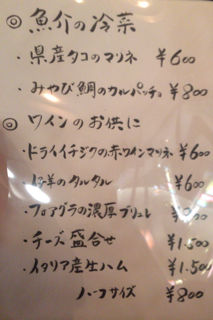 ◎ 魚介の冷菜
・県産タコのマリネ ¥600
・みやび鯛のカルパッチョ ¥800
◎ ワインのお供に
・ドライイチジクの赤ワインマリネ ¥600
・仔羊のタルタル ¥600
・フォアグラの濃厚ブリュレ
・チーズ盛合せ ¥1.500
・イタリア産生ハム ¥1.500
ハーフサイズ ¥800